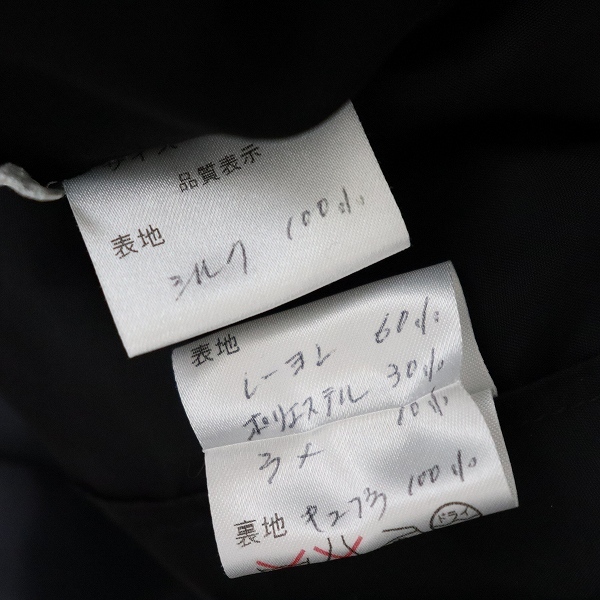 サイズ
品質表示
表地
シルク 100%
表地
レーヨン 60%
ポリエステル 30%
ラメ 10%
裏地 キュプラ 100%
ドライ